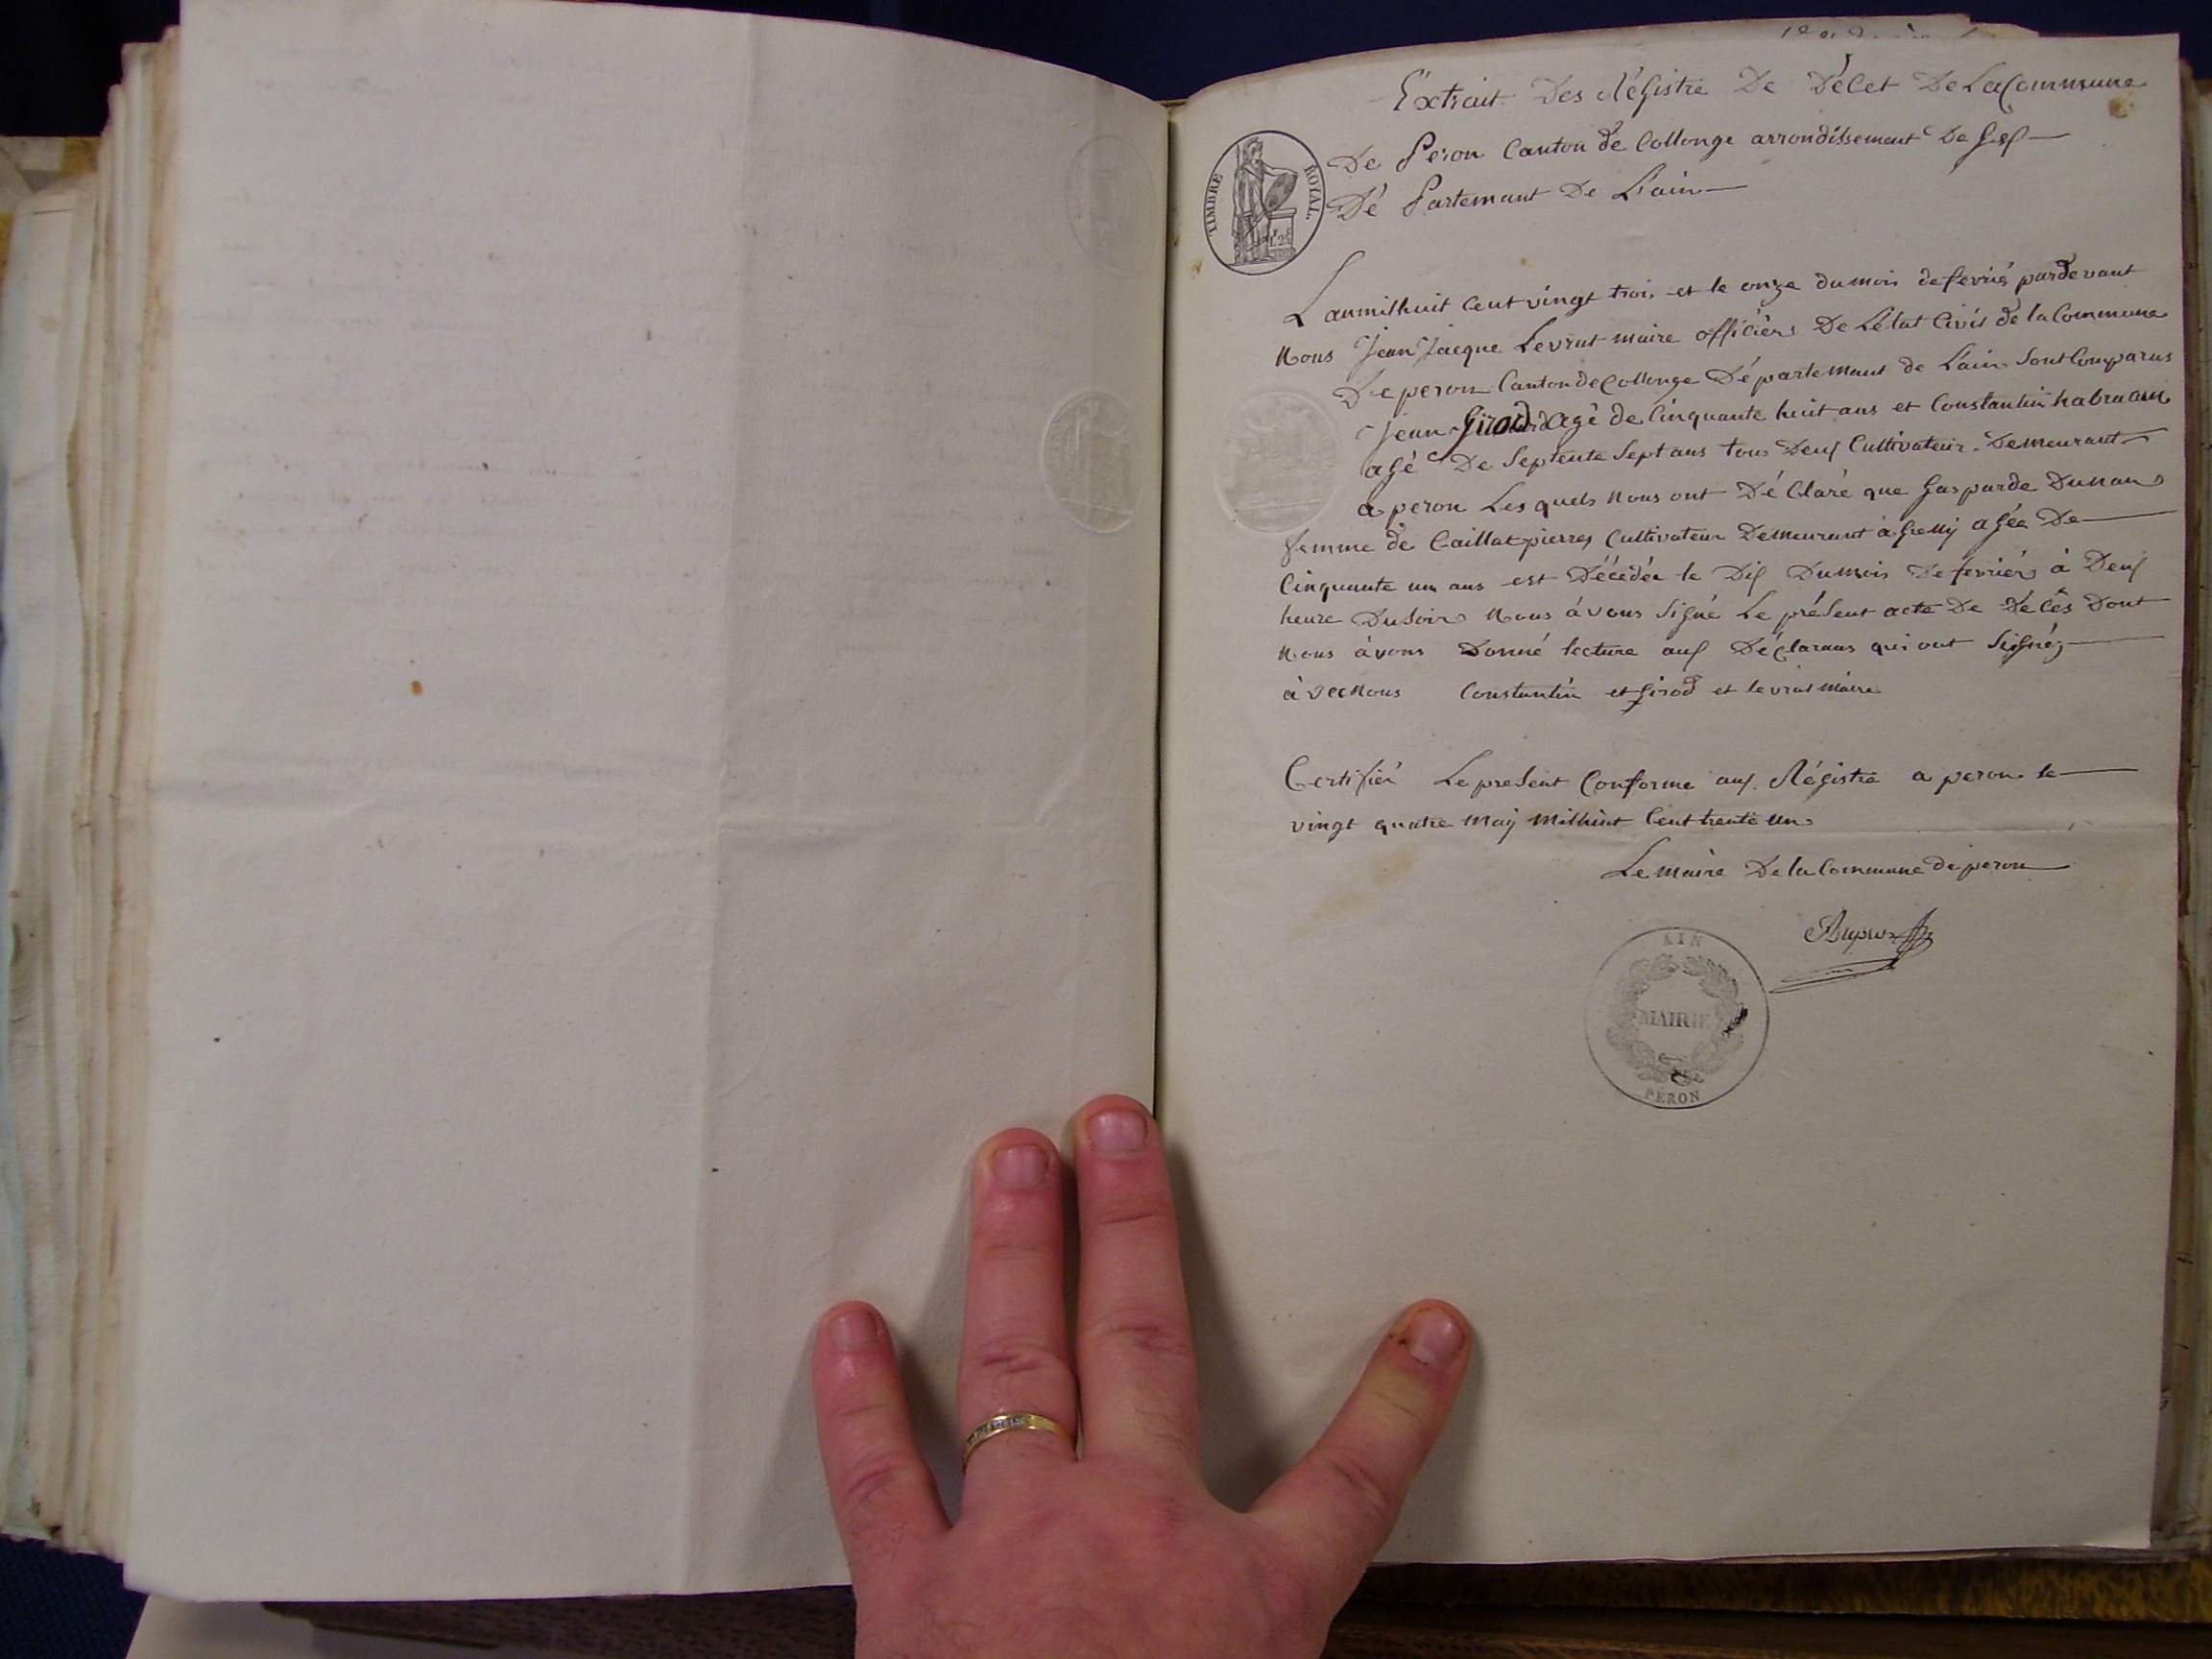 Extrait Des Régistre De Décet De La Commune
De Peron Canton de Collonge arrondissement De Gex
Dé Partemant De L'ain
TIMBRE ROYAL.
L'an mil huit Cent vingt trois et le onze du mois de fevrié pardevant
Nous Jean Jacque Levrat maire officiérs De L'état Civil de la Commune
De peron Canton de Collonge Département de L'ain Sont Comparus
Jean Girod agé de Cinquante huit ans et Constantin habraam
agé De Septente Sept ans tous Deux Cultivateur Demeurant
a peron Les quels Nous ont Dé Claré que Gasparde Dunan
femme de Caillat pierres Cultivateur Demeurant à Grelly agée De
Cinquante un ans est Décédée le Dix Du mois De fevriér à Deux
heure Du Soir Nous avons Signé Le présent acte De Décès Dont
Nous avons Donné lecture aux Déclarans qui ont Signéz
avec Nous Constantin et Girod et levrat maire
Certifié Le present Conforme aux Régistre a peron le
vingt quatre May Mil huit Cent trente un
Le maire De la Commune De peron
AIN
MAIRIE
PERON